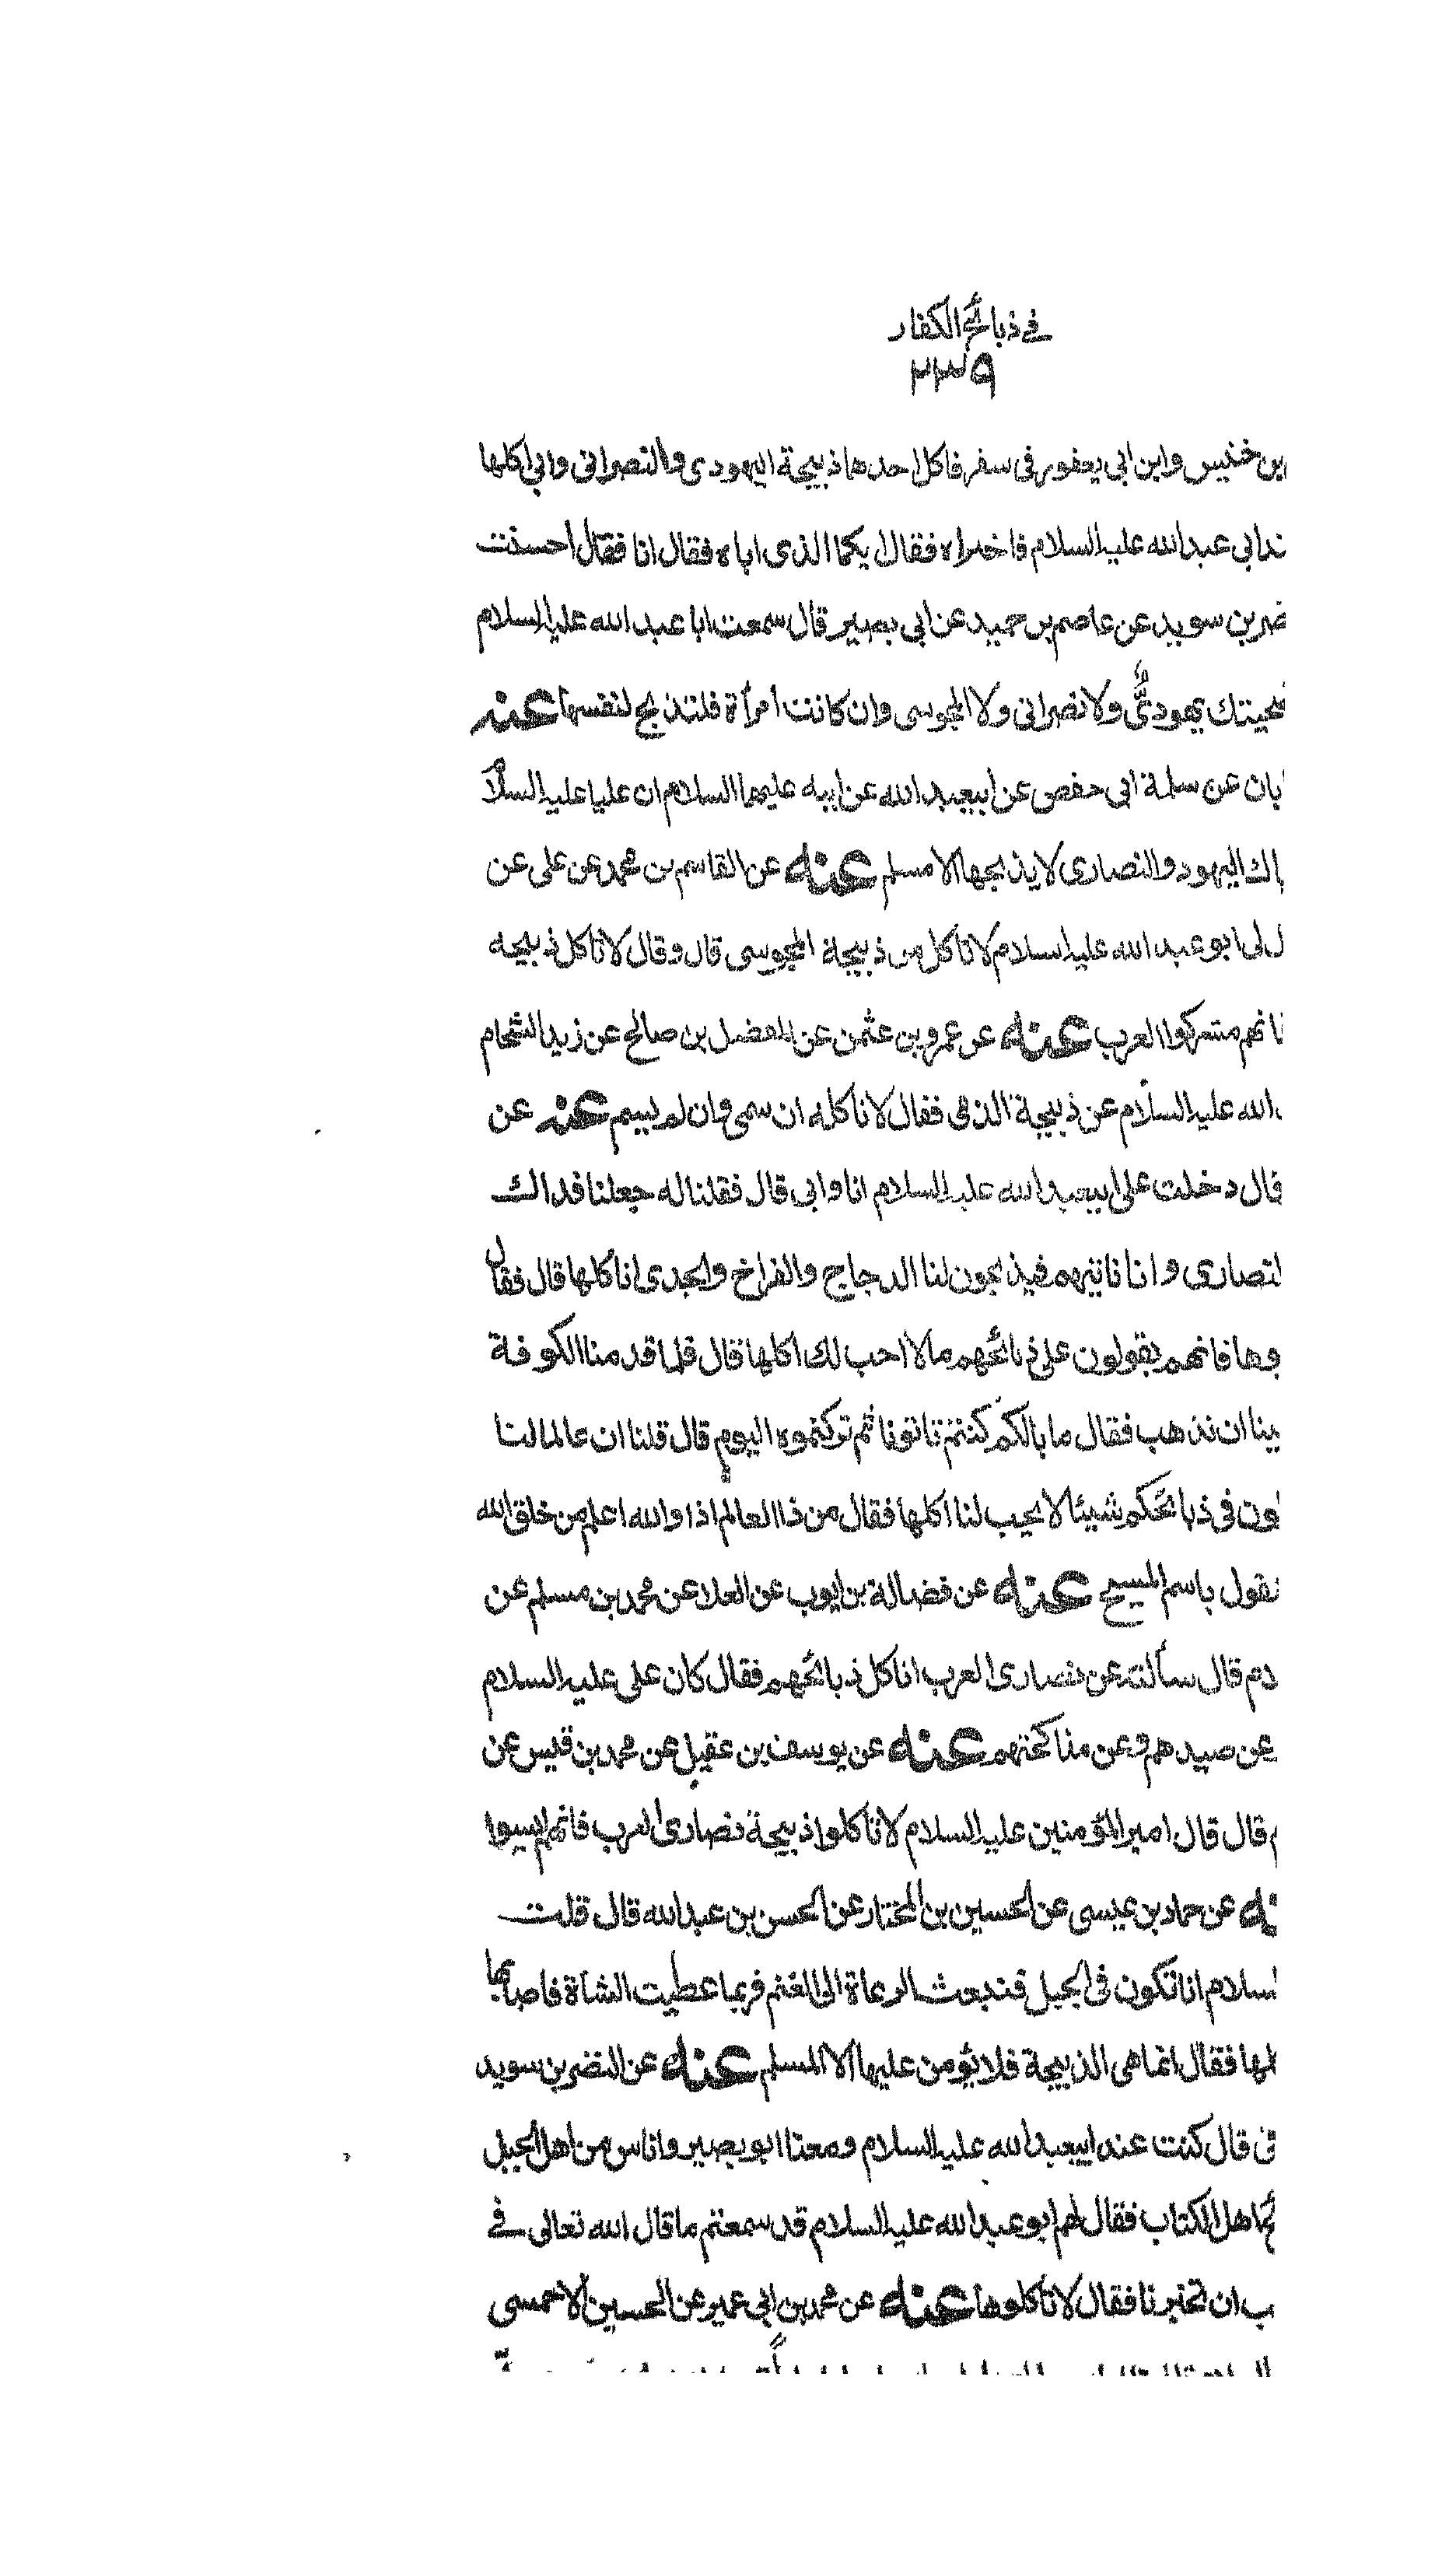 في ذبائح الكفار
٢٣٩
بن خنيس وابن ابى يعفور فى سفر فاكل احدهما ذبيحة اليهودى والنصرانى وابى اكلها
ابى عبدالله عليه السلام فاخبراه فقال ايكما الذى اباه فقال انا فقال احسنت
بن سويد عن عاصم بن حميد عن ابى بصير قال سمعت ابا عبد الله عليه السلام
يهودىٌّ ولا نصرانى ولا المجوسى وان كانت امرأة فلتذبح لنفسها عنه
عن سلمة ابى حفص عن ابيعبد الله عن ابيه عليهما السلام ان عليا عليه السلام
اليهود والنصارى لا يذبحها الا مسلم عنه عن القاسم بن محمد عن على عن
لى ابو عبد الله عليه السلام لا تاكل من ذبيحة المجوسى قال وقال لا تاكل ذبيحه
متعركوا العرب عنه عن عمرو بن عثمن عن المفضل بن صالح عن زيد الشحام
الله عليه السلام عن ذبيحة الذمى فقال لا تاكله ان سمى وان لم يسم عنه عن
قال دخلت على ابيعبد الله عليه السلام انا وابى قال فقلنا له جعلنا فداك
وانا ناتيهم فيذبحون لنا الدجاج والفراخ والجدى اناكلها قال فقال
فانهم يقولون على ذبائحهم ما لا احب لك اكلها قال فلما قدمنا الكوفة
ان نذهب فقال ما بالكم كنتم تاتونا ثم تركتموه اليوم قال قلنا ان عالما لنا
فى ذبائحكم شيئا لا يحب لنا اكلها فقال من ذا العالم اذا والله اعلم من خلق الله
نقول باسم المسيح عنه عن فضالة بن ايوب عن العلا عن محمد بن مسلم عن
قال سألته عن نصارى العرب اناكل ذبائحهم فقال كان على عليه السلام
عن صيدهم وعن مناكحتهم عنه عن يوسف بن عقيل عن محمد بن قيس عن
قال قال امير المؤمنين عليه السلام لا تاكلوا ذبيحة نصارى العرب فانهم ليسوا
عن حماد بن عيسى عن الحسين بن المختار عن الحسن بن عبدالله قال قلت
انا نكون فى الجبل فنبعث الرعاة الى الغنم فربما عطبت الشاة فاصابها
فقال انما هى الذبيحة فلا يؤمن عليها الا المسلم عنه عن النضر بن سويد
قال كنت عند ابيعبد الله عليه السلام ومعنا ابو بصير واناس من اهل الجبل
اهل الكتاب فقال لهم ابو عبد الله عليه السلام قد سمعتم ما قال الله تعالى فى
ان تخبرنا فقال لا تاكلوها عنه عن محمد بن ابى عمير عن الحسين الاحمسى